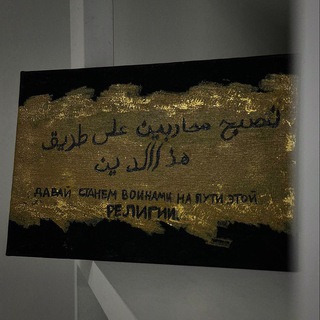 لنصبح محاربين على طريق
هذا الدين
ДАВАЙ СТАНЕМ ВОИНАМИ НА ПУТИ ЭТОЙ
РЕЛИГИИ